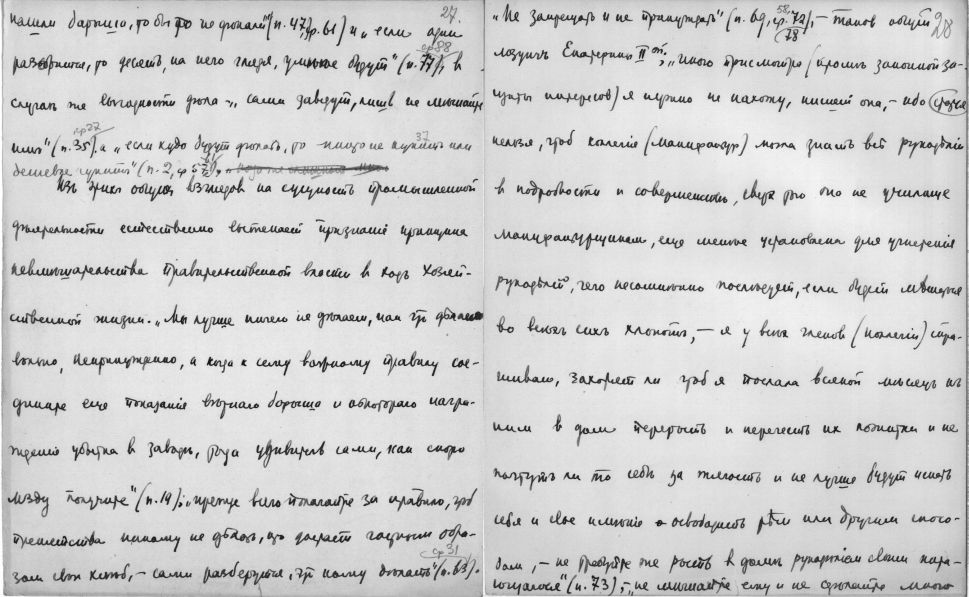 27.
нашли барыша, то бы то не делали" (п. 47, ср. 61) и „если один
ср 88
разорится, то десять, на него глядя, умнее будут" (п. 77), в
случае же выгодности дела – „сами заведут, лишь не мешайте
ср 27
им" (п. 35). и „если худо будут делать, то никто не купит или
37
дешевле купит" (п. 2, ср
Из этих общих взглядов на сущность промышленной
деятельности естественно вытекает признаніе принципа
невмешательства правительственной власти в ход хозяй-
ственной жизни. „Мы лучше ничего не делаем, как где делаем
вольно, непринужденно, а когда к сему важному правилу сое-
дините еще показаніе вернаго барыша и некотораго награ-
жденія убытка в заводе, тогда увидите сами, как скоро
мзду получите" (п. 14); „прежде всего полагайте за правило, чтоб
препятства никому не делать, что достает годным обра-
ср 31
зом свой хлеб, – сами разберутся, где кому досталь" (п. 63).
28
„Не запрещать и не принуждать" (п. 69, ср. 72), – таков общій
58
78
лозунг Екатерины II ой; „иного присмотра (кромь законной за-
щиты интересов) я нужно не нахожу, пишет она, – ибо статься
нельзя, чтоб коллегія (мануфактур) могла знать все рукоделія
в подробности и совершенстве, сверх того оно не училище
мануфактурщикам, еще меньше установлена для угнетенія
рукоделій, чего несомненно последует, если будет мешаться
во всех сих хлопотах, – я у всех членов (коллегіи) спра-
шиваю, захотят ли чтоб я послала всякой месяц к
ним в дом перерыть и перечесть их пожитки и не
почтут ли то себе за тягость и не лучше будут искать
себя и свое имение освободить тем или другим спосо-
бом, – не претите же расти в домах рукоделіем своим пита-
ющагося" (п. 73); – „не мешайте ему и не сделайте много